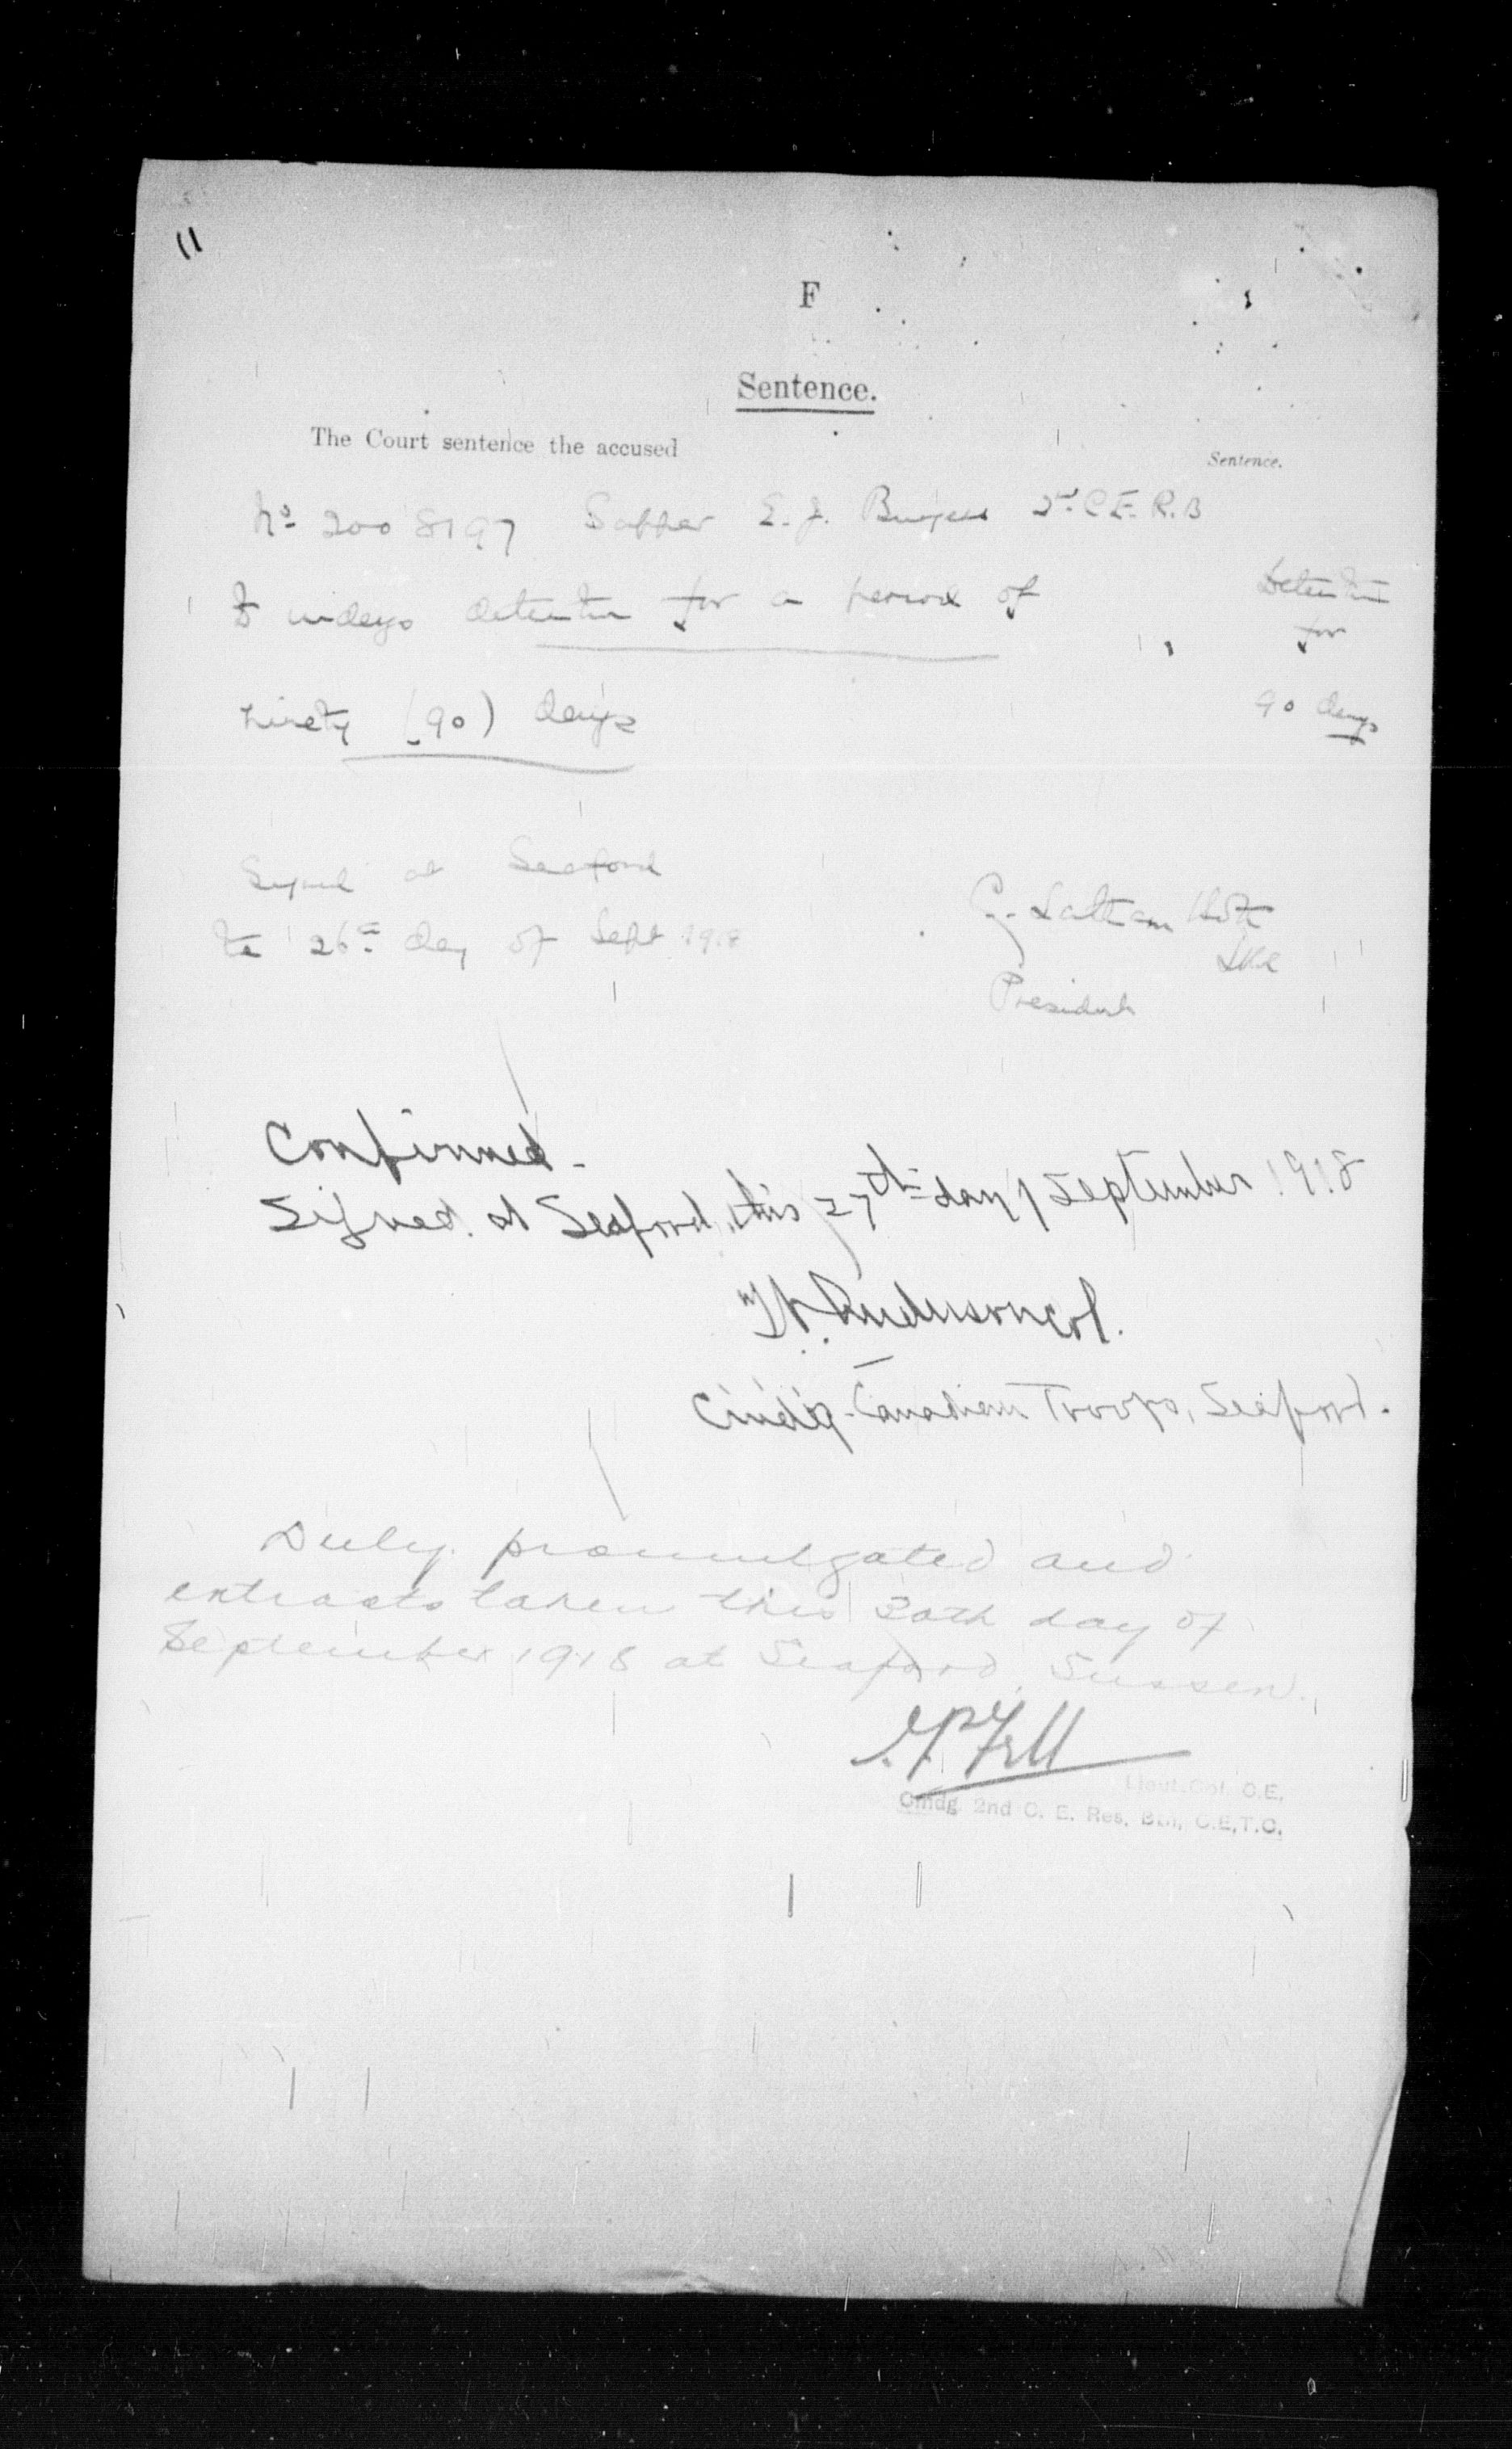 11
F
Sentence.
The Court sentence the accused
Sentence.
No 2008197 Sapper E. J. Burgess 2nd C.E.R.B
to undergo detention for a period of
Detention
for
ninety (90) days
90 days
Signed at Seaford
the 26th day of Sept 1918
G. Latham
President
Confirmed.
Signed at Seaford, this 27th day of September 1918
Anderson Col.
Cmdg. Canadian Troops, Seaford.
Duly promulgated and
extracts taken this 30th day of
September 1918 at Seaford, Sussex.
Lieut. Col. C.E.
Cmdg 2nd C. E. Res. Btn, C.E.T.C.